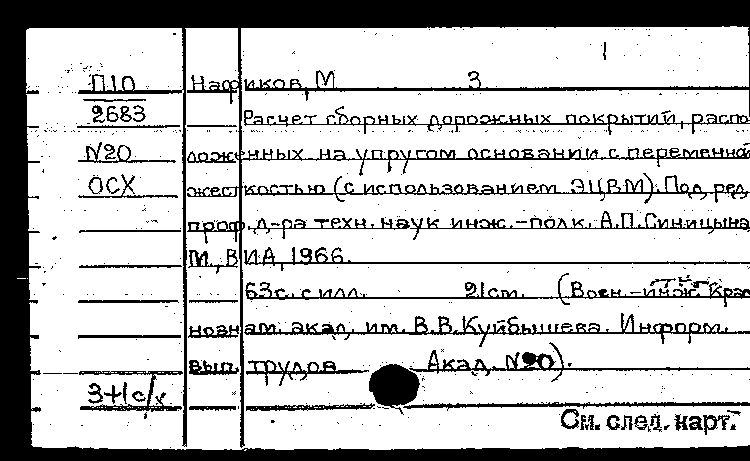 1
П10 Нафиков, М 3
2683 Расчет сборных дорожных покрытий, распо
N20 ложенных на упругом основании с переменной
ОСХ жесткостью (с использованием ЭЦВМ). Под ред.
проф. д-ра техн. наук инж.-полк. А.П.Синицына
М., ВИА, 1966.
63с. с илл. 21см. (Воен.-инж. Крас
нознам. акад. им. В.В.Куйбышева. Информ.
вып. трудов Акад. N20).
3+1с/х
См. след. карт.